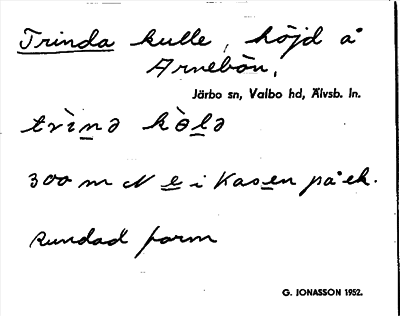 Trinda kulle, höjd å
Arnebön.
Järbo sn, Valbo hd, Älvsb. ln.
trìnə kɵ̀lə
300 m N e i Kasen på ek.
Rundad form
G. JONASSON 1952.